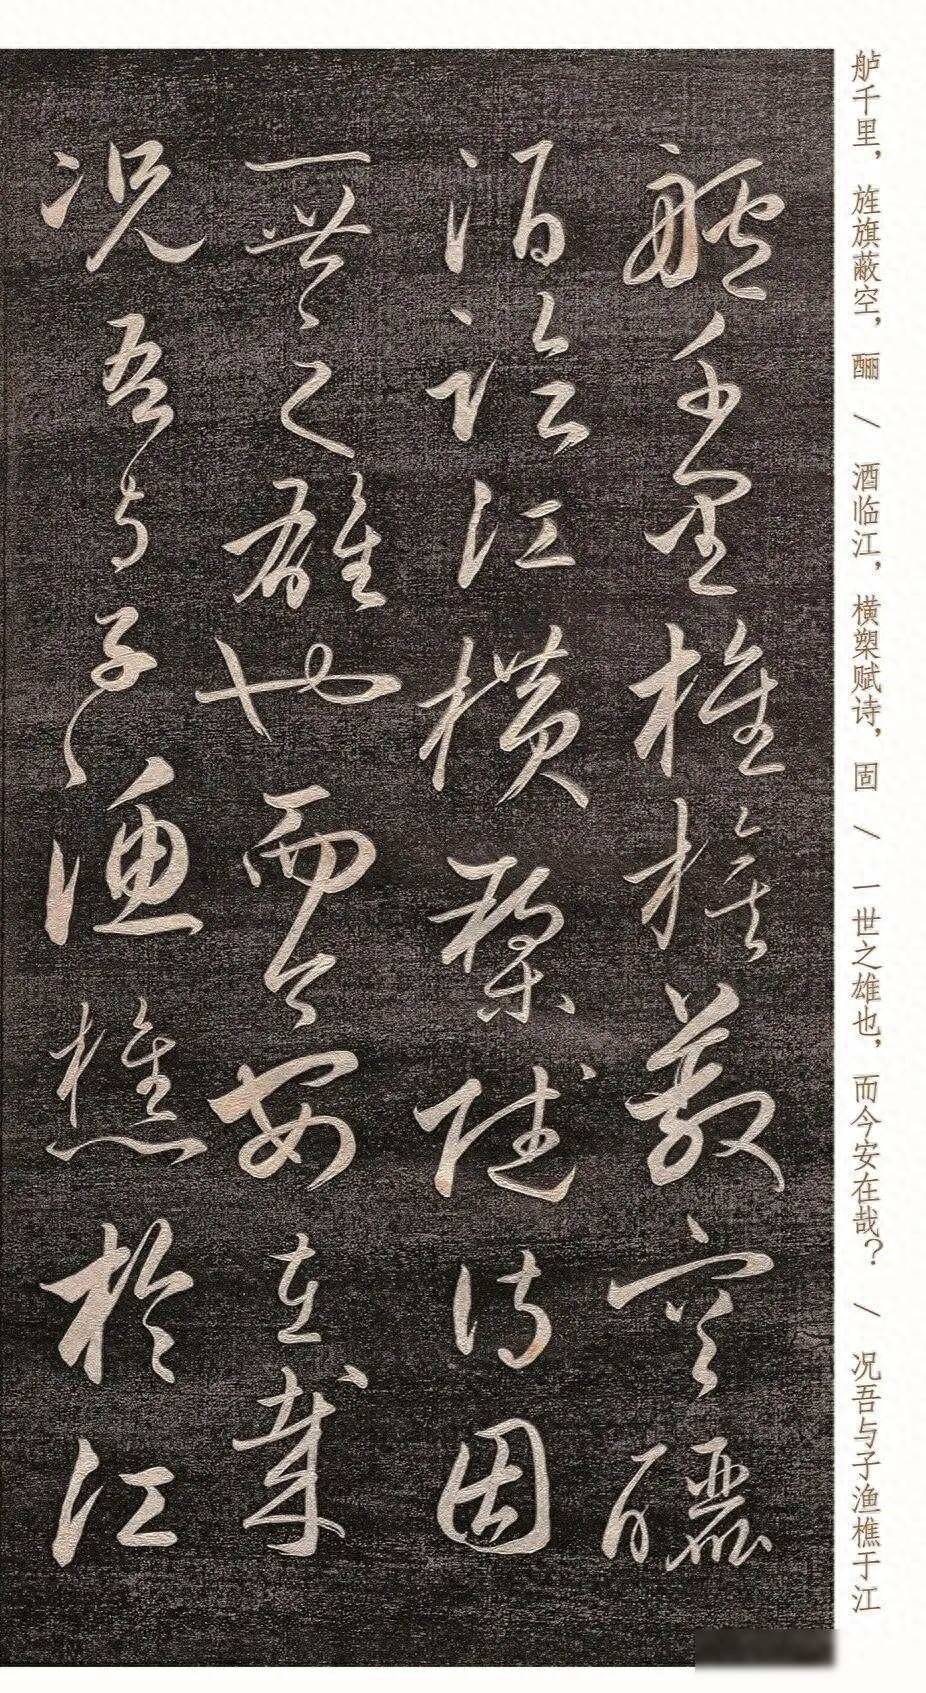 舻千里，旌旗蔽空，酾 / 酒临江，横槊赋诗，固 / 一世之雄也，而今安在哉？ / 况吾与子渔樵于江
舻千里旌旗蔽空酾
酒临江横槊赋诗固
一世之雄也而今安在哉
况吾与子渔樵於江